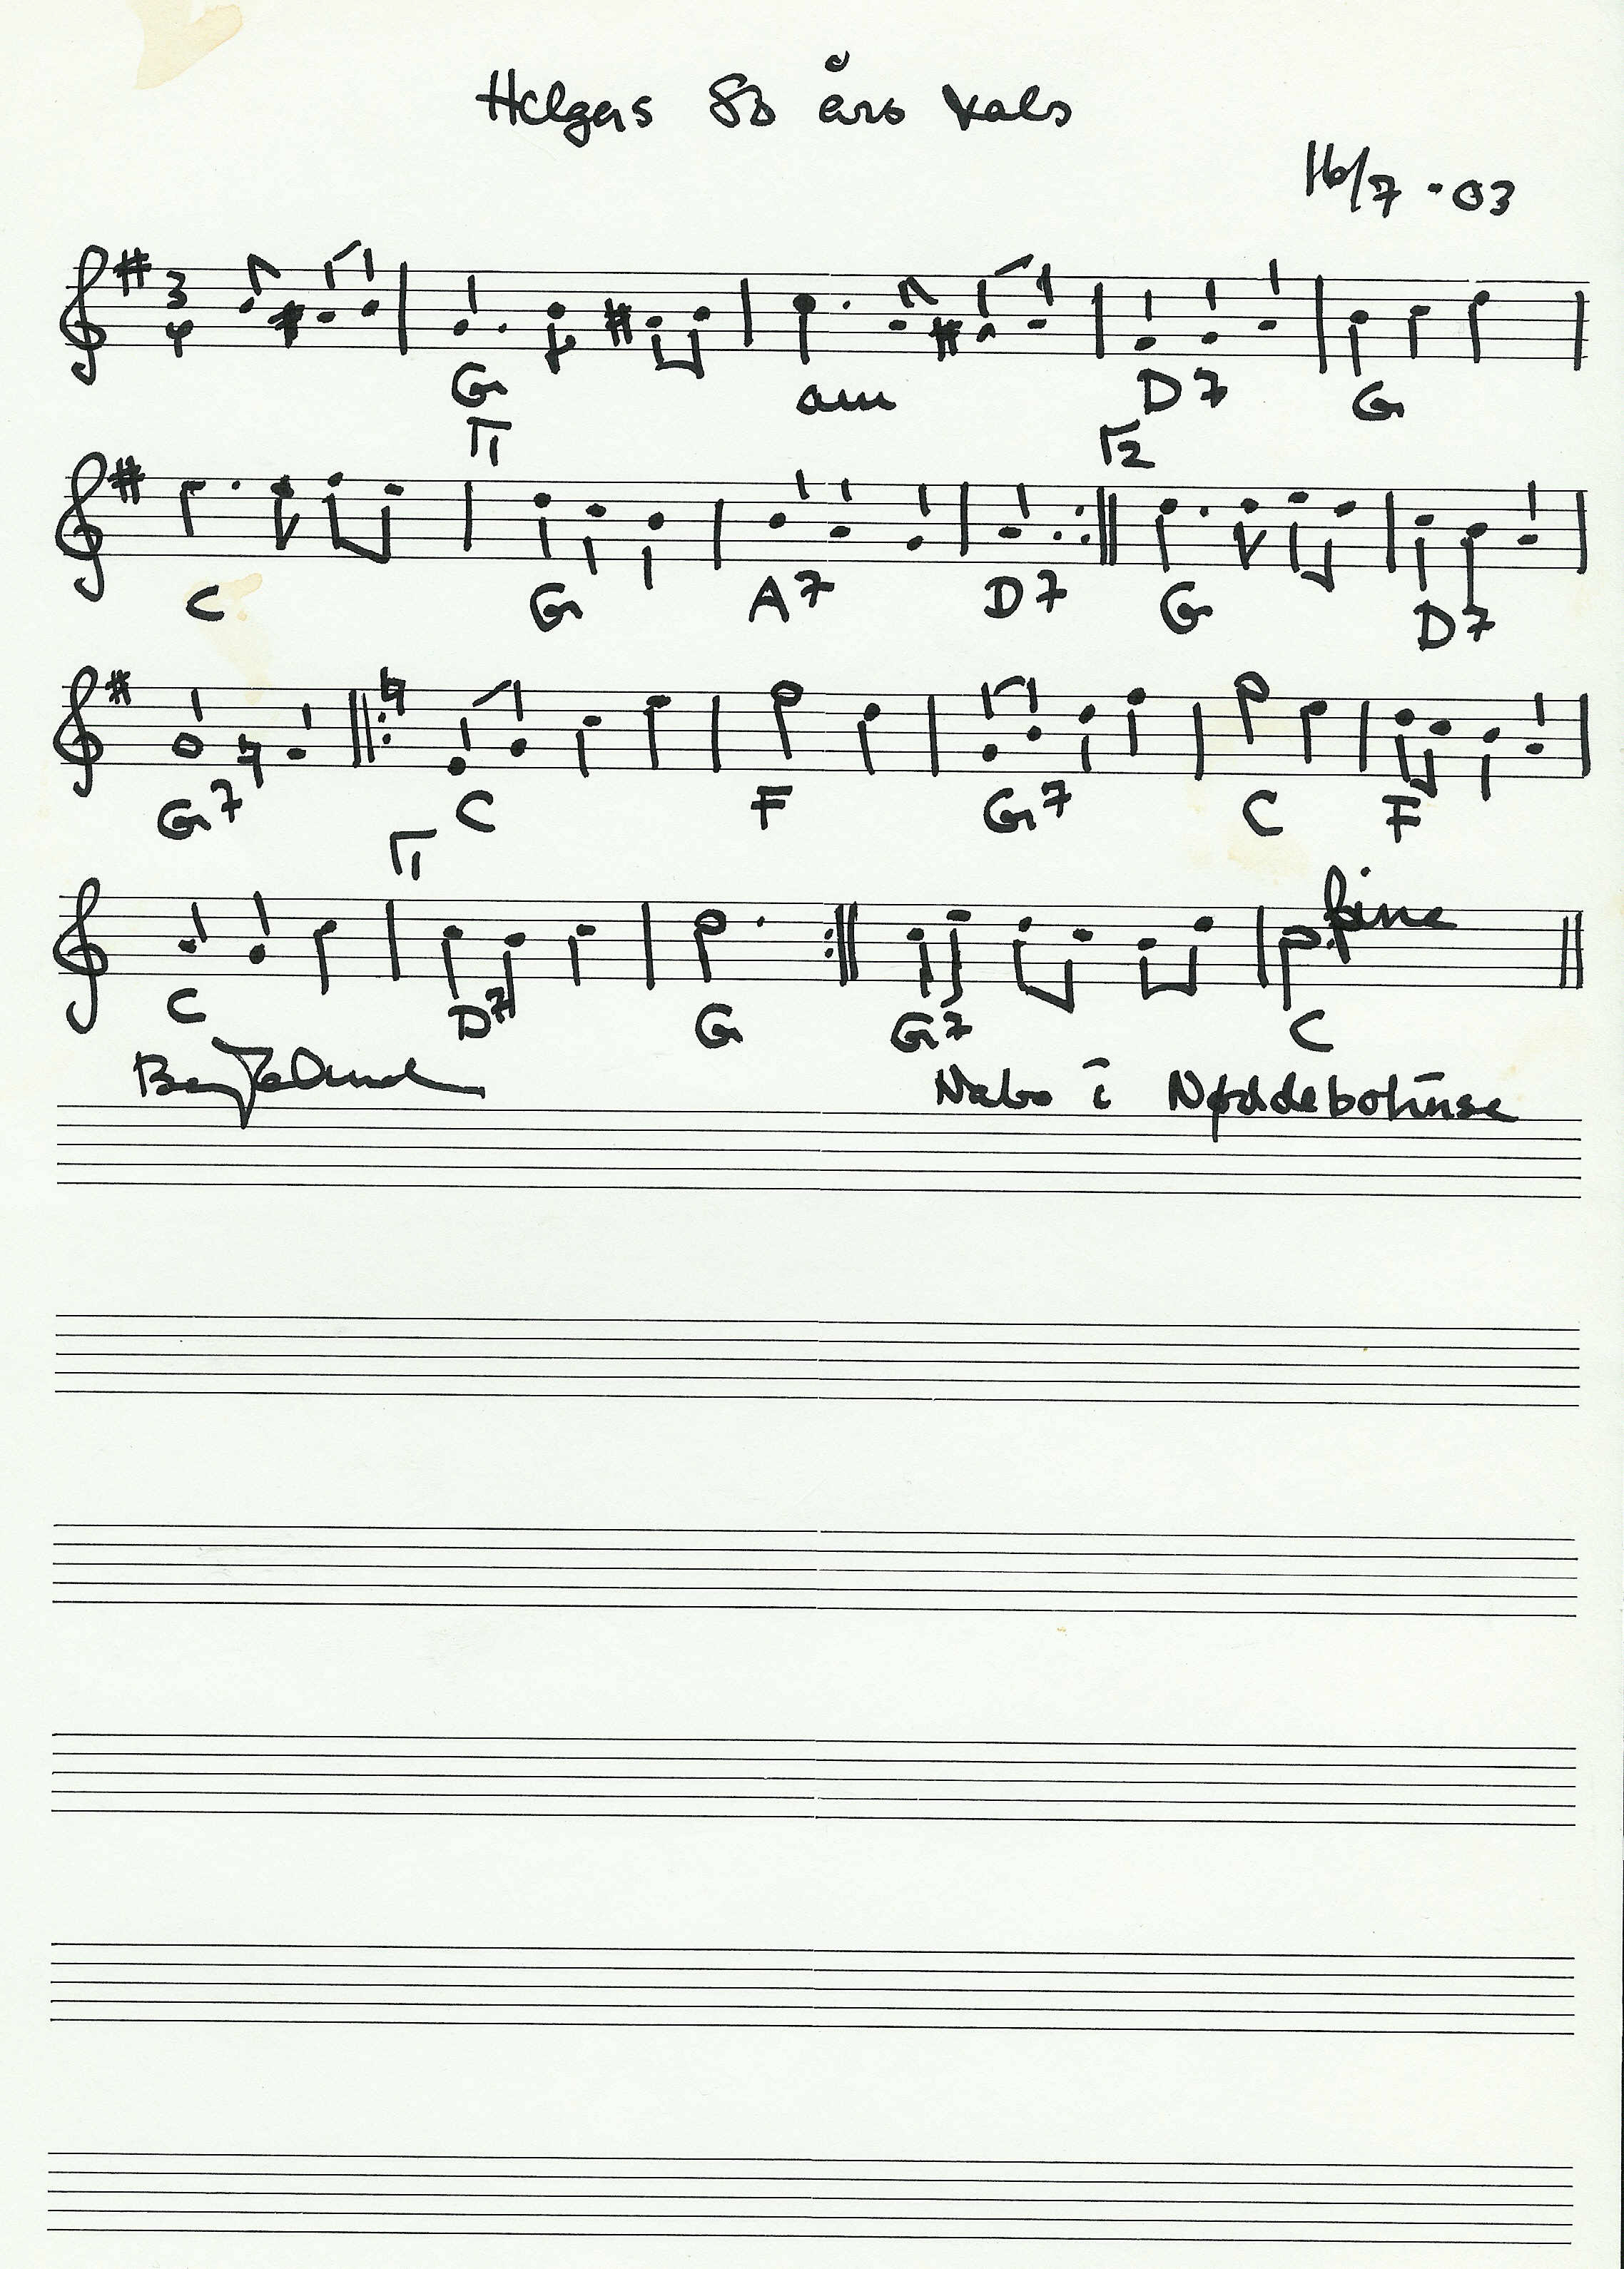 Helges 80 års vals
16/7 - 03
3
4
G am D7 G
1 2
C G A7 D7 G D7
G7 C F G7 C F
1
fine
C D7 G G7 C
Nabo i Nøddebohuse